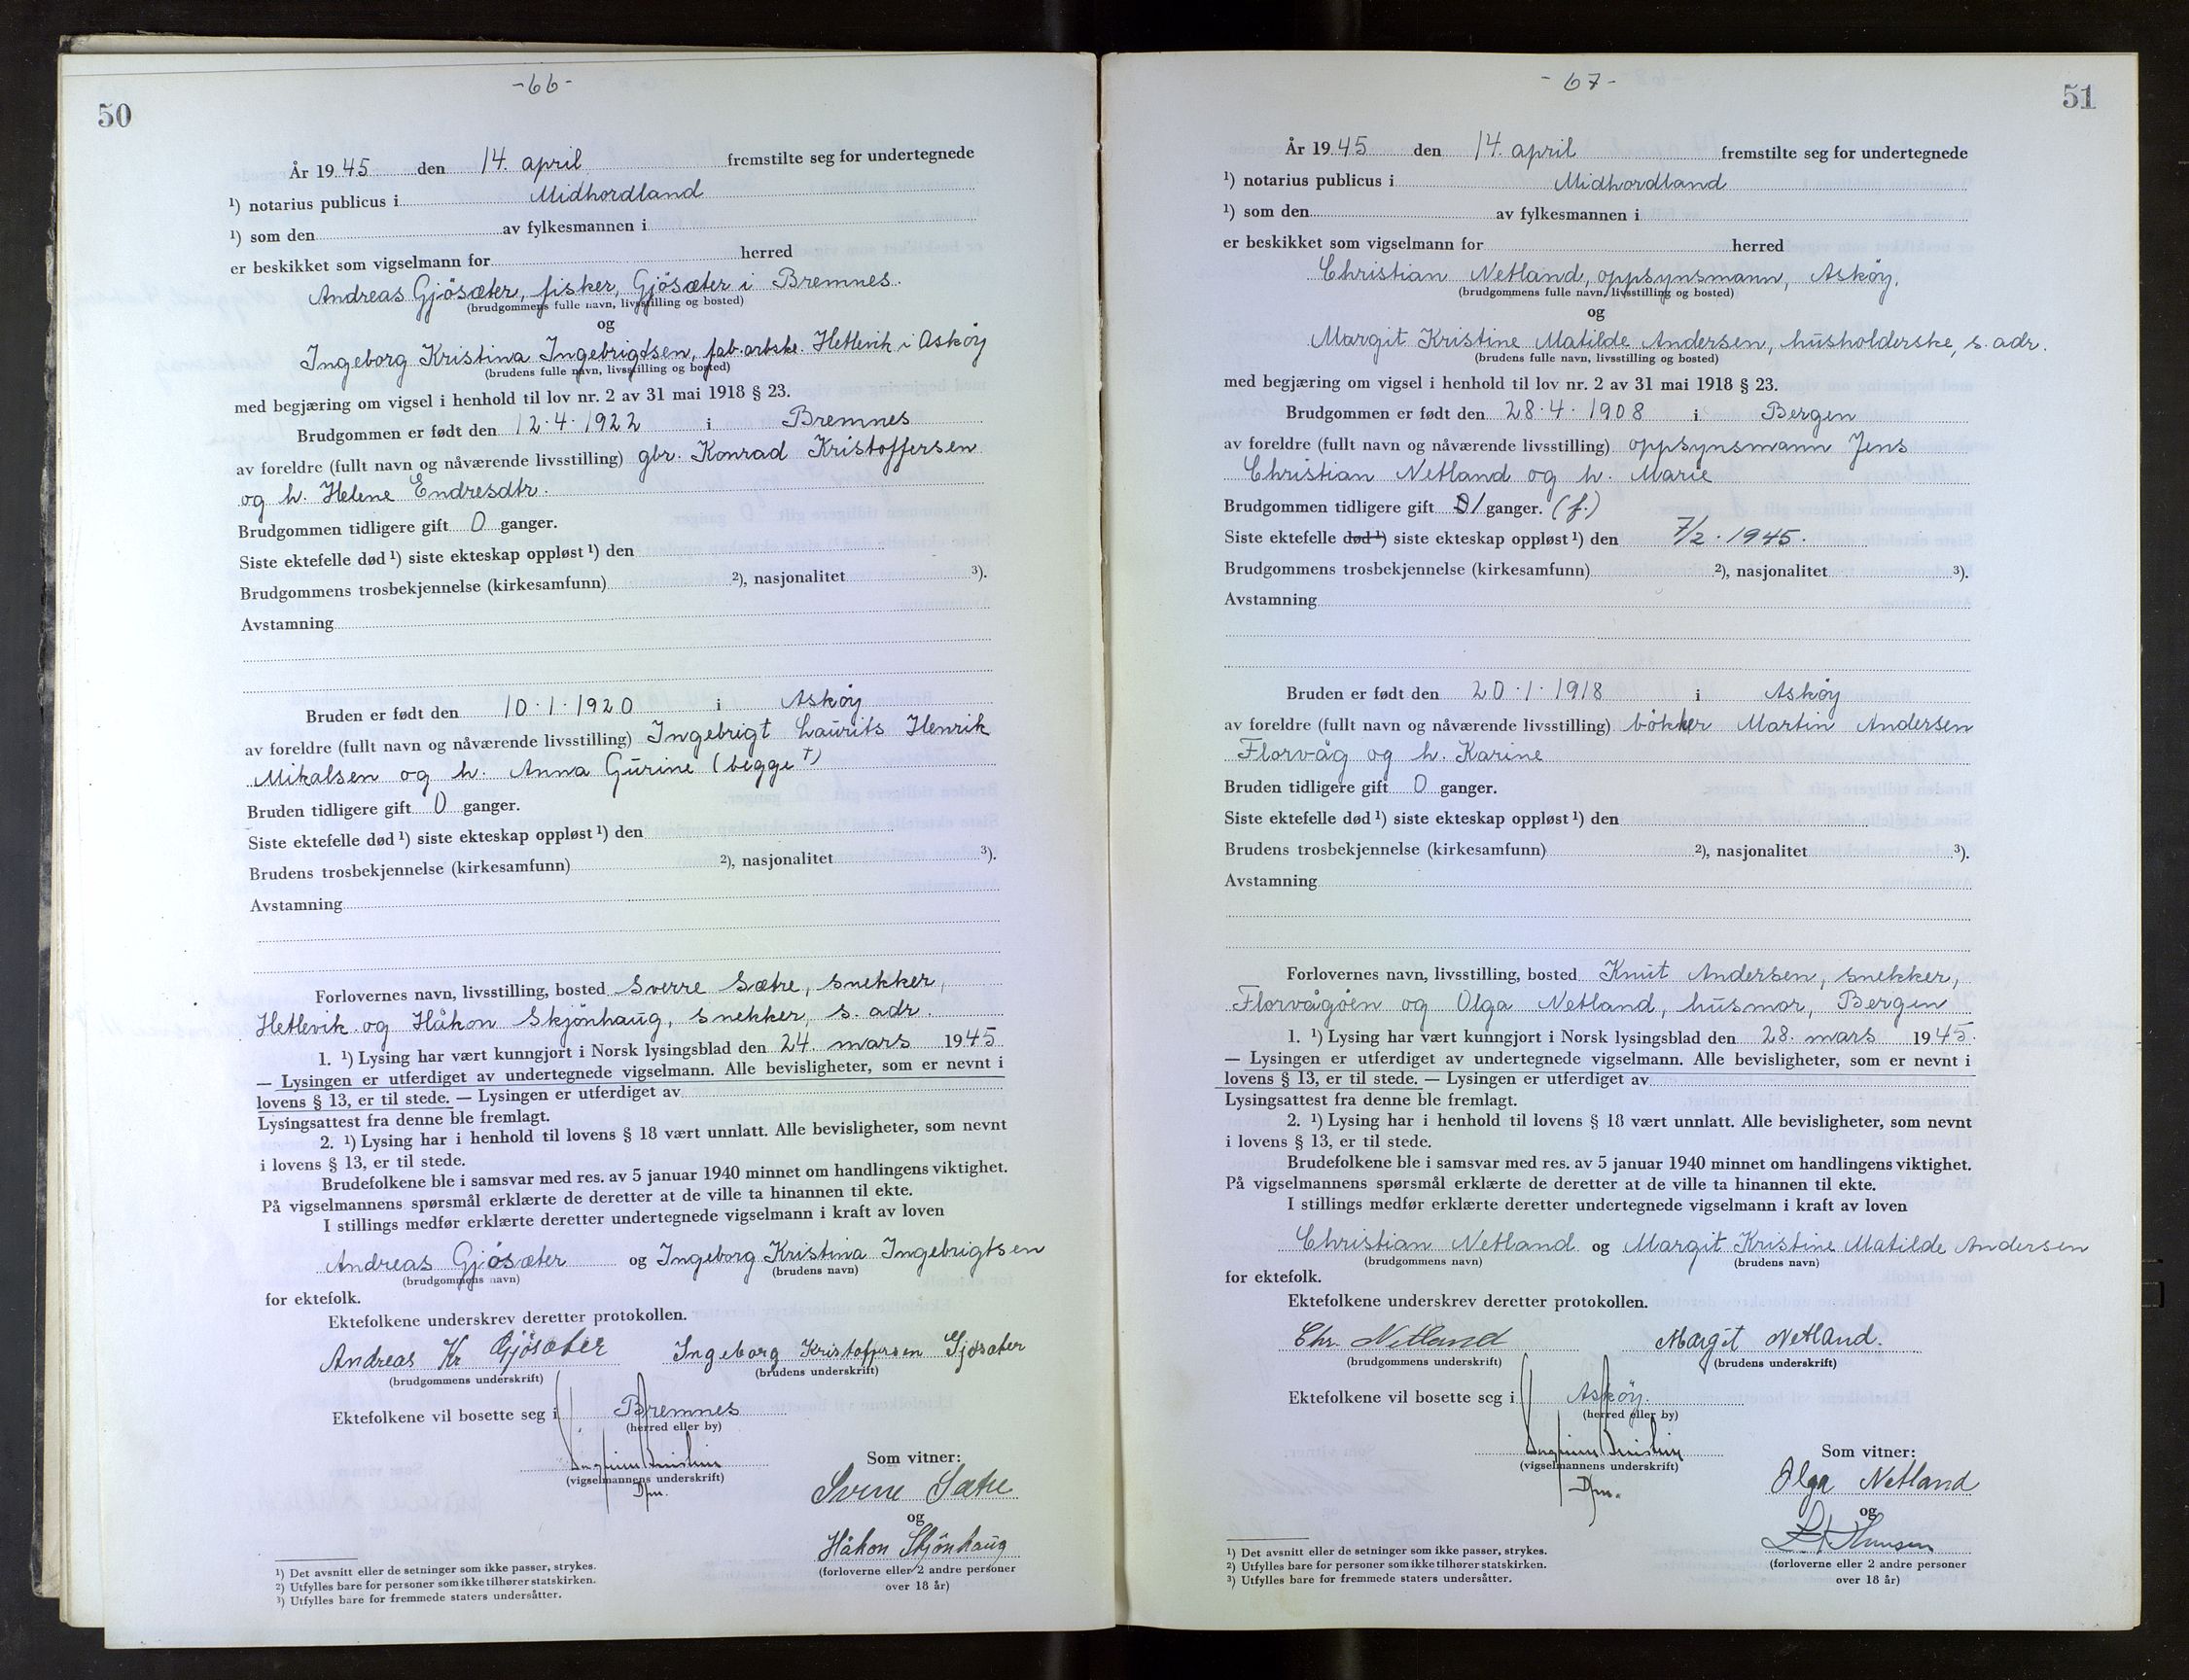 -66-
50
År 1945 den 14. april fremstilte seg for undertegnede
¹) notarius publicus i Midhordland
¹) som den av fylkesmannen i
er beskikket som vigselmann for herred
Andreas Gjøsæter, fisker, Gjøsæter i Bremnes.
(brudgommens fulle navn, livsstilling og bosted)
og
Ingeborg Kristina Ingebrigtsen, fab.arbske. Hetlevik i Askøy
(brudens fulle navn, livsstilling og bosted)
med begjæring om vigsel i henhold til lov nr. 2 av 31 mai 1918 § 23.
Brudgommen er født den 12.4.1922 i Bremnes
av foreldre (fullt navn og nåværende livsstilling) gbr. Konrad Kristoffersen
og h. Helene Endresdtr.
Brudgommen tidligere gift 0 ganger.
Siste ektefelle død ¹) siste ekteskap oppløst ¹) den
Brudgommens trosbekjennelse (kirkesamfunn) ²), nasjonalitet ³).
Avstamning
Bruden er født den 10.1.1920 i Askøy
av foreldre (fullt navn og nåværende livsstilling) Ingebrigt Laurits Henrik
Mikalsen og h. Anna Gurine (begge †)
Bruden tidligere gift 0 ganger.
Siste ektefelle død ¹) siste ekteskap oppløst ¹) den
Brudens trosbekjennelse (kirkesamfunn) ²), nasjonalitet ³).
Avstamning
Forlovernes navn, livsstilling, bosted Sverre Sætre, snekker,
Hetlevik og Håkon Skjønhaug, snekker, s. adr.
1. ¹) Lysing har vært kunngjort i Norsk lysingsblad den 24. mars 1945
— Lysingen er utferdiget av undertegnede vigselmann. Alle bevisligheter, som er nevnt i
lovens § 13, er til stede. — Lysingen er utferdiget av
Lysingsattest fra denne ble fremlagt.
2. ¹) Lysing har i henhold til lovens § 18 vært unnlatt. Alle bevisligheter, som nevnt
i lovens § 13, er til stede.
Brudefolkene ble i samsvar med res. av 5 januar 1940 minnet om handlingens viktighet.
På vigselmannens spørsmål erklærte de deretter at de ville ta hinannen til ekte.
I stillings medfør erklærte deretter undertegnede vigselmann i kraft av loven
Andreas Gjøsæter og Ingeborg Kristina Ingebrigtsen
(brudgommens navn) (brudens navn)
for ektefolk.
Ektefolkene underskrev deretter protokollen.
Andreas Kr Gjøsæter Ingeborg Kristoffersen Gjøsæter
(brudgommens underskrift) (brudens underskrift)
Ektefolkene vil bosette seg i Bremnes
(herred eller by)
(vigselmannens underskrift)
Dfm.
Som vitner:
Sverre Sætre
og
Håkon Skjønhaug
(forloverne eller 2 andre personer
over 18 år)
¹) Det avsnitt eller de setninger som ikke passer, strykes.
²) Utfylles bare for personer som ikke tilhører statskirken.
³) Utfylles bare for fremmede staters undersåtter.
-67-
51
År 1945 den 14. april fremstilte seg for undertegnede
¹) notarius publicus i Midhordland
¹) som den av fylkesmannen i
er beskikket som vigselmann for herred
Christian Netland, oppsynsmann, Askøy.
(brudgommens fulle navn, livsstilling og bosted)
og
Margit Kristine Matilde Andersen, husholderske, s. adr.
(brudens fulle navn, livsstilling og bosted)
med begjæring om vigsel i henhold til lov nr. 2 av 31 mai 1918 § 23.
Brudgommen er født den 28.4.1908 i Bergen
av foreldre (fullt navn og nåværende livsstilling) oppsynsmann Jens
Christian Netland og h. Marie
Brudgommen tidligere gift 0 1 ganger. (f.)
Siste ektefelle død ¹) siste ekteskap oppløst ¹) den 7/2.1945.
Brudgommens trosbekjennelse (kirkesamfunn) ²), nasjonalitet ³).
Avstamning
Bruden er født den 20.1.1918 i Askøy
av foreldre (fullt navn og nåværende livsstilling) bøkker Martin Andersen
Florvåg og h. Karine
Bruden tidligere gift 0 ganger.
Siste ektefelle død ¹) siste ekteskap oppløst ¹) den
Brudens trosbekjennelse (kirkesamfunn) ²), nasjonalitet ³).
Avstamning
Forlovernes navn, livsstilling, bosted Knut Andersen, snekker,
Florvågøen og Olga Netland, husmor, Bergen
1. ¹) Lysing har vært kunngjort i Norsk lysingsblad den 28. mars 1945.
— Lysingen er utferdiget av undertegnede vigselmann. Alle bevisligheter, som er nevnt i
lovens § 13, er til stede. — Lysingen er utferdiget av
Lysingsattest fra denne ble fremlagt.
2. ¹) Lysing har i henhold til lovens § 18 vært unnlatt. Alle bevisligheter, som nevnt
i lovens § 13, er til stede.
Brudefolkene ble i samsvar med res. av 5 januar 1940 minnet om handlingens viktighet.
På vigselmannens spørsmål erklærte de deretter at de ville ta hinannen til ekte.
I stillings medfør erklærte deretter undertegnede vigselmann i kraft av loven
Christian Netland og Margit Kristine Matilde Andersen
(brudgommens navn) (brudens navn)
for ektefolk.
Ektefolkene underskrev deretter protokollen.
Chr. Netland Margit Netland.
(brudgommens underskrift) (brudens underskrift)
Ektefolkene vil bosette seg i Askøy.
(herred eller by)
(vigselmannens underskrift)
Dfm.
Som vitner:
Olga Netland
og
(forloverne eller 2 andre personer
over 18 år)
¹) Det avsnitt eller de setninger som ikke passer, strykes.
²) Utfylles bare for personer som ikke tilhører statskirken.
³) Utfylles bare for fremmede staters undersåtter.